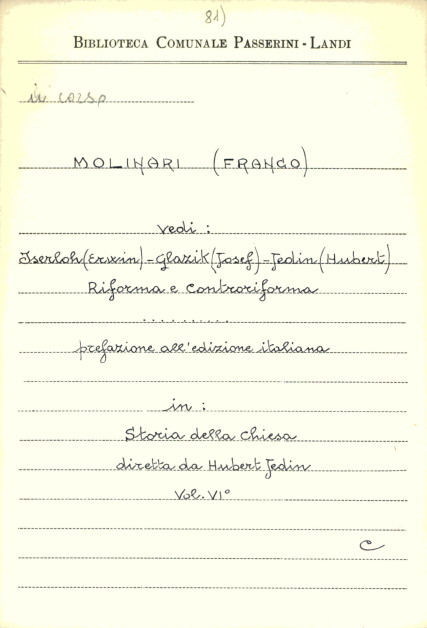 81)
BIBLIOTECA COMUNALE PASSERINI - LANDI
in corso
MOLINARI (FRANCO)
vedi :
Iserloh (Erwin) - Glazik (Josef) - Jedin (Hubert)
Riforma e Controriforma
. . . . . . . . .
prefazione all'edizione italiana
in :
Storia della Chiesa
diretta da Hubert Jedin
Vol. VI°
C